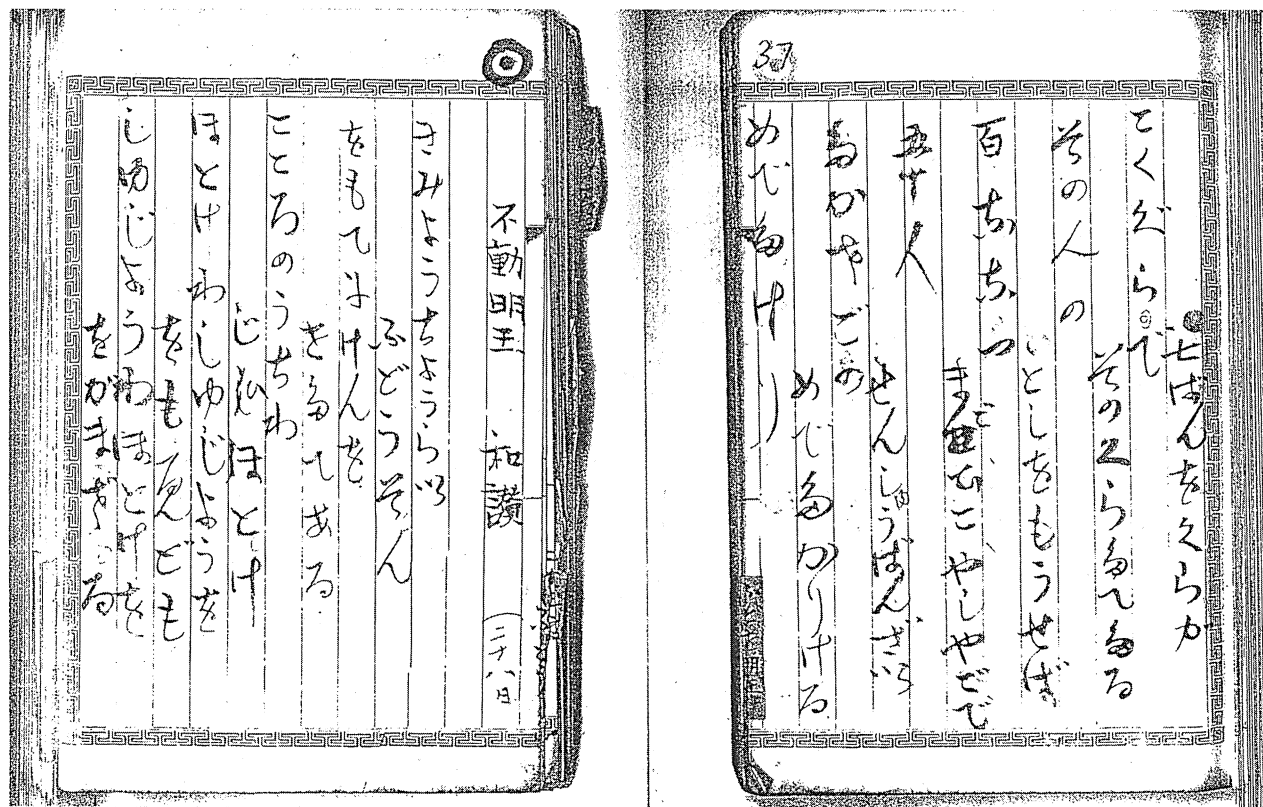 37
七ばんをくらが
こくぞらで
そのくらたてたる
その人の
いとしをもうせば
百
五十人
せんじゅうばんぜい
たかやごの
めでたかりける
めでたけり
不動明王 和讃 (二十八日
きみようちようらい
ふどうそん
をもてはけんを
きたてある
こころのうちわ
じひほとけ
ほとけわしゆじようを
をも見ども
しゆじようわほとけを
をがまざる